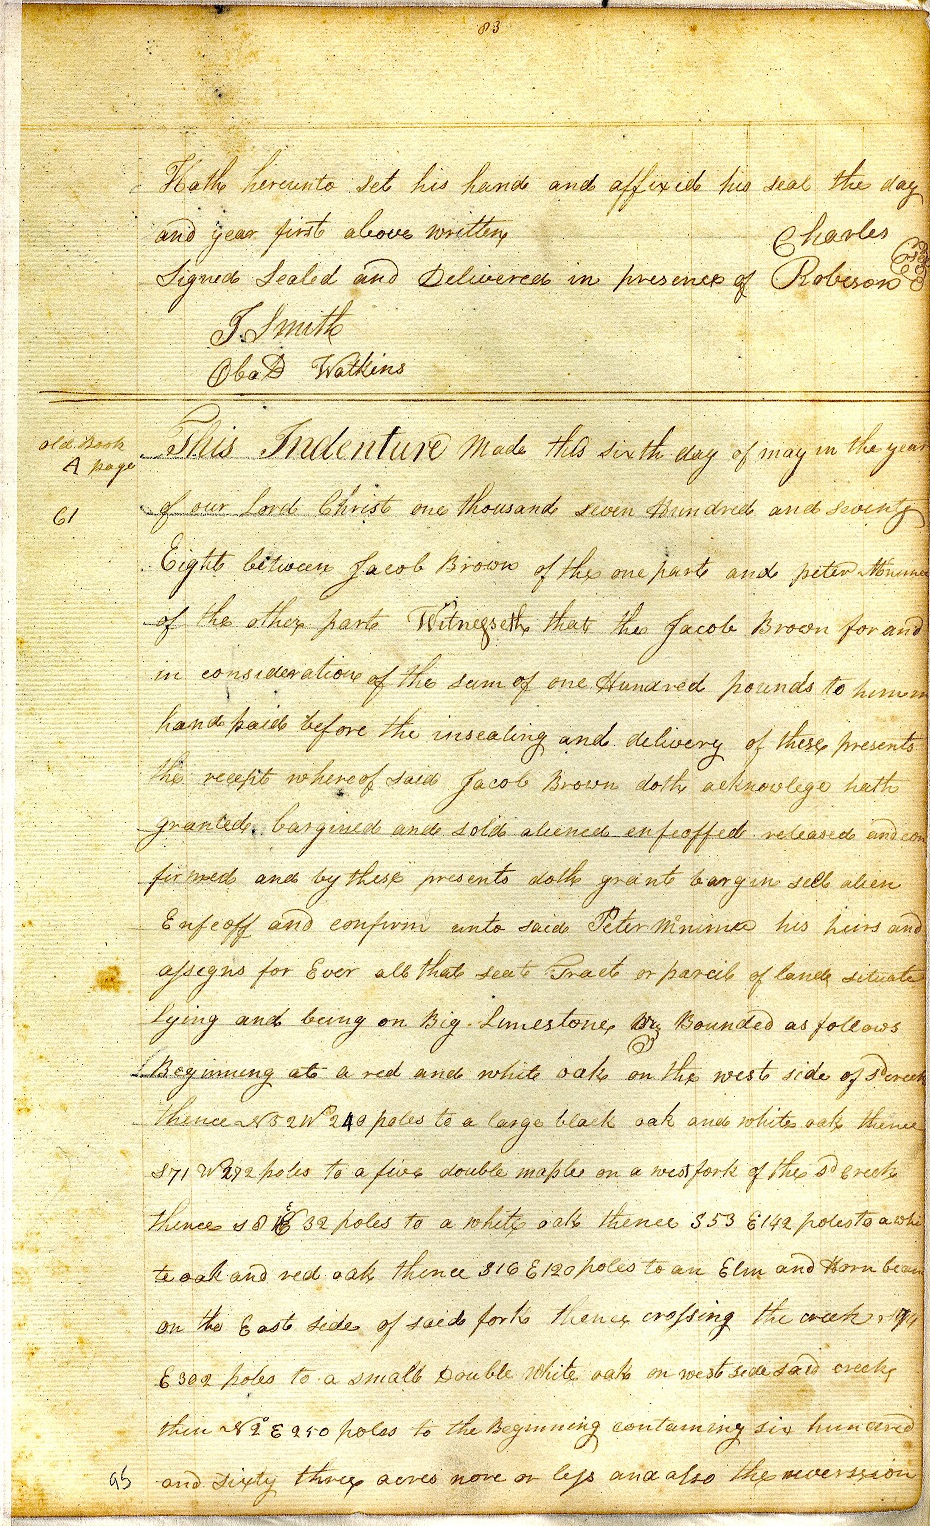 83
Hath hereunto set his hand and affixed his seal the day
and year first above written
Charles
Signed Sealed and Delivered in presence of Robeson
J. Smith
Obad Watkins
old Book
A page
61
This Indenture Made this sixth day of may in the year
of our Lord Christ one thousand seven Hundred and seventy
Eight between Jacob Brown of the one part and peter Mcnimee
of the other part Witnesseth that the Jacob Brown for and
in consideration of the sum of one Hundred pounds to him in
hand paid before the insealing and delivery of these presents
the receipt whereof said Jacob Brown doth acknowlege hath
granted bargined and sold aliened enfeoffed released and con
firmed and by these presents doth grant bargin sell alien
Enfeoff and confirm unto said Peter Mcnimee his heirs and
assigns for Ever all that seat Tract or parcil of land situate
lying and being on Big Limestone Bounded as follows
Beginning at a red and white oak on the west side of sd creek
thence N 52 W 240 poles to a large black oak and white oak thence
S 71 W 292 poles to a five double maple on a west fork of the sd creek
thence S 8 E 32 poles to a white oak thence S 53 E 142 poles to a whi
te oak and red oak thence S 16 E 120 poles to an Elm and Horn beam
on the East side of said fork thence crossing the creek
E 302 poles to a small Double White oak on west side said creek
then N 2° E 250 poles to the Beginning containing six hundred
95 and sixty three acres more or less and also the reverssion